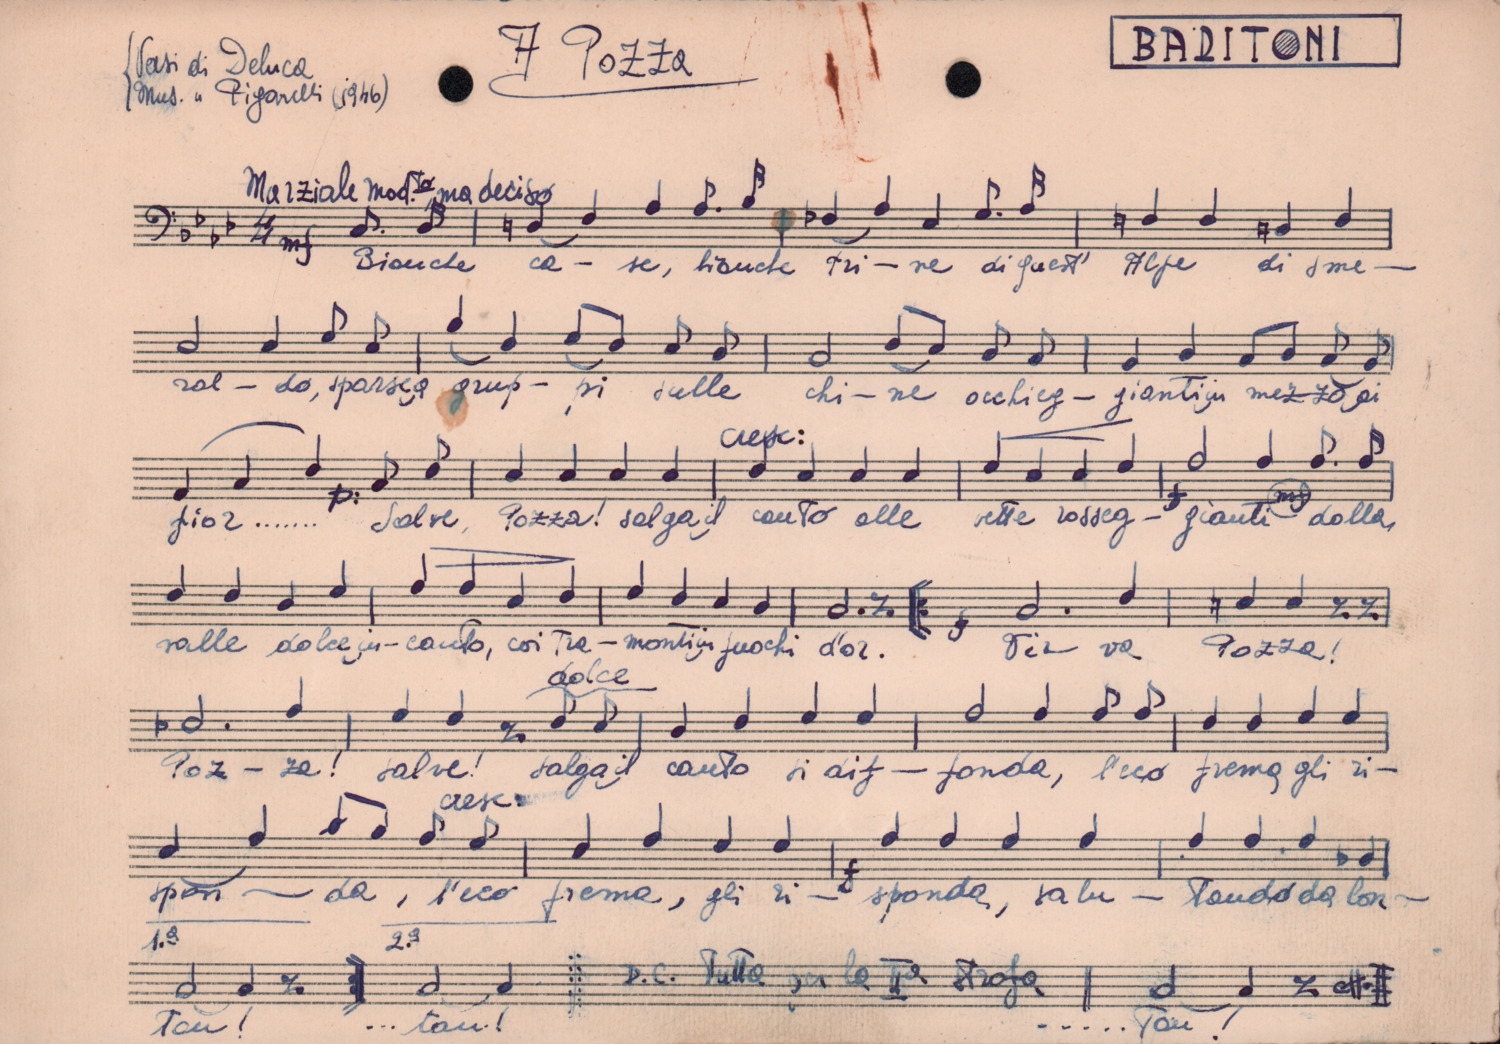 Versi di Deluca
Mus. " Pigarelli (1946)
A Pozza
BARITONI
Marziale mod.to, ma deciso
mf
Bianche ca - se, bianche tri - ne di quest' Alpe di sme -
ral - do, sparse a grup - pi sulle chi - ne occhieg - gianti in mezzo ai
cresc:
fior ....... p: Salve, Pozza! salga il canto alle vette rosseg - f gianti mf dalla
valle dolce in - canto, coi tra - monti in fuochi d'or. f Viva Pozza!
dolce
Poz - za! salve! salga il canto si dif - fonda, l'eco frema gli ri -
cresc:
spon - da, l'eco frema, gli ri - f sponda, salu - tando da lon -
1.a 2.a
D.C. Tutta per la IIa strofa
tan! ... tan! ...... tan!